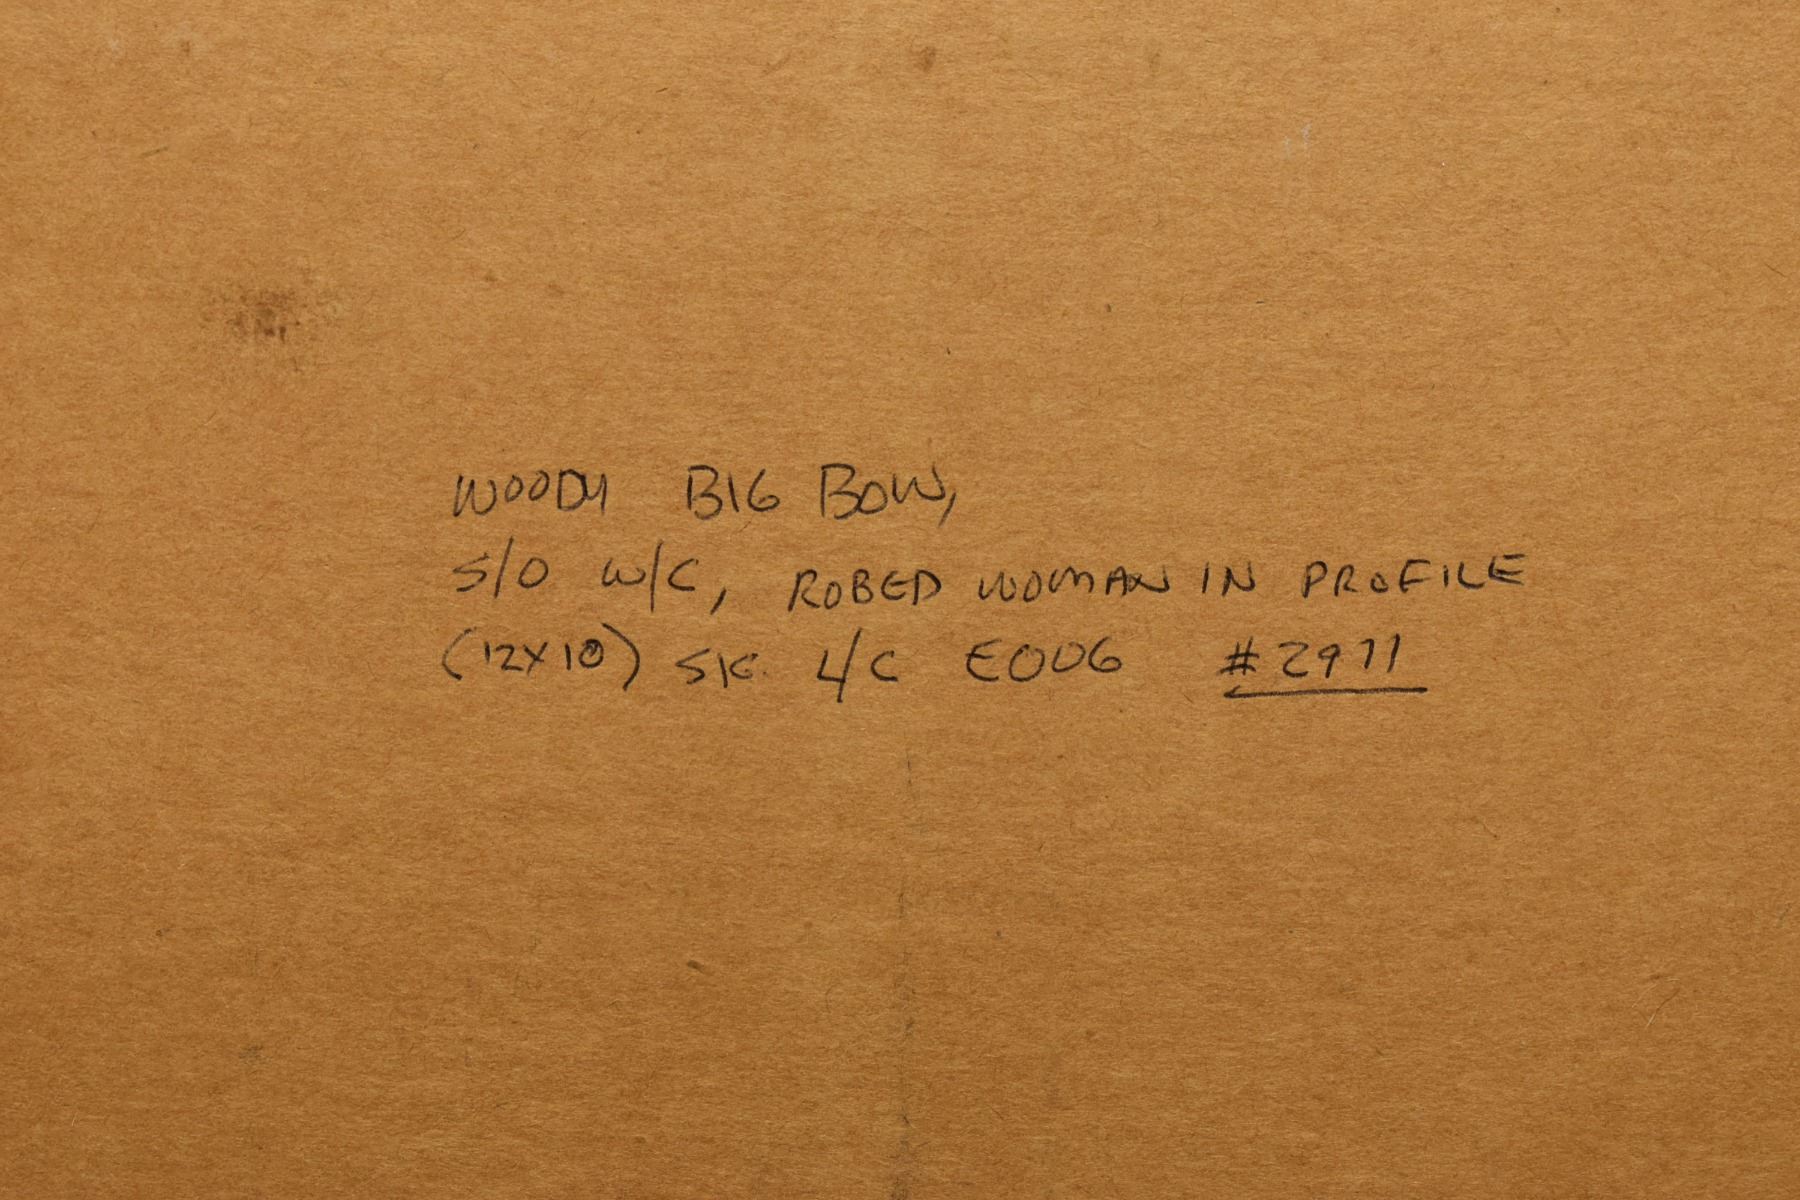 WOODY BIG BOW,
S/O W/C, ROBED WOMAN IN PROFILE
(12X10) SK. L/C E006 #2971